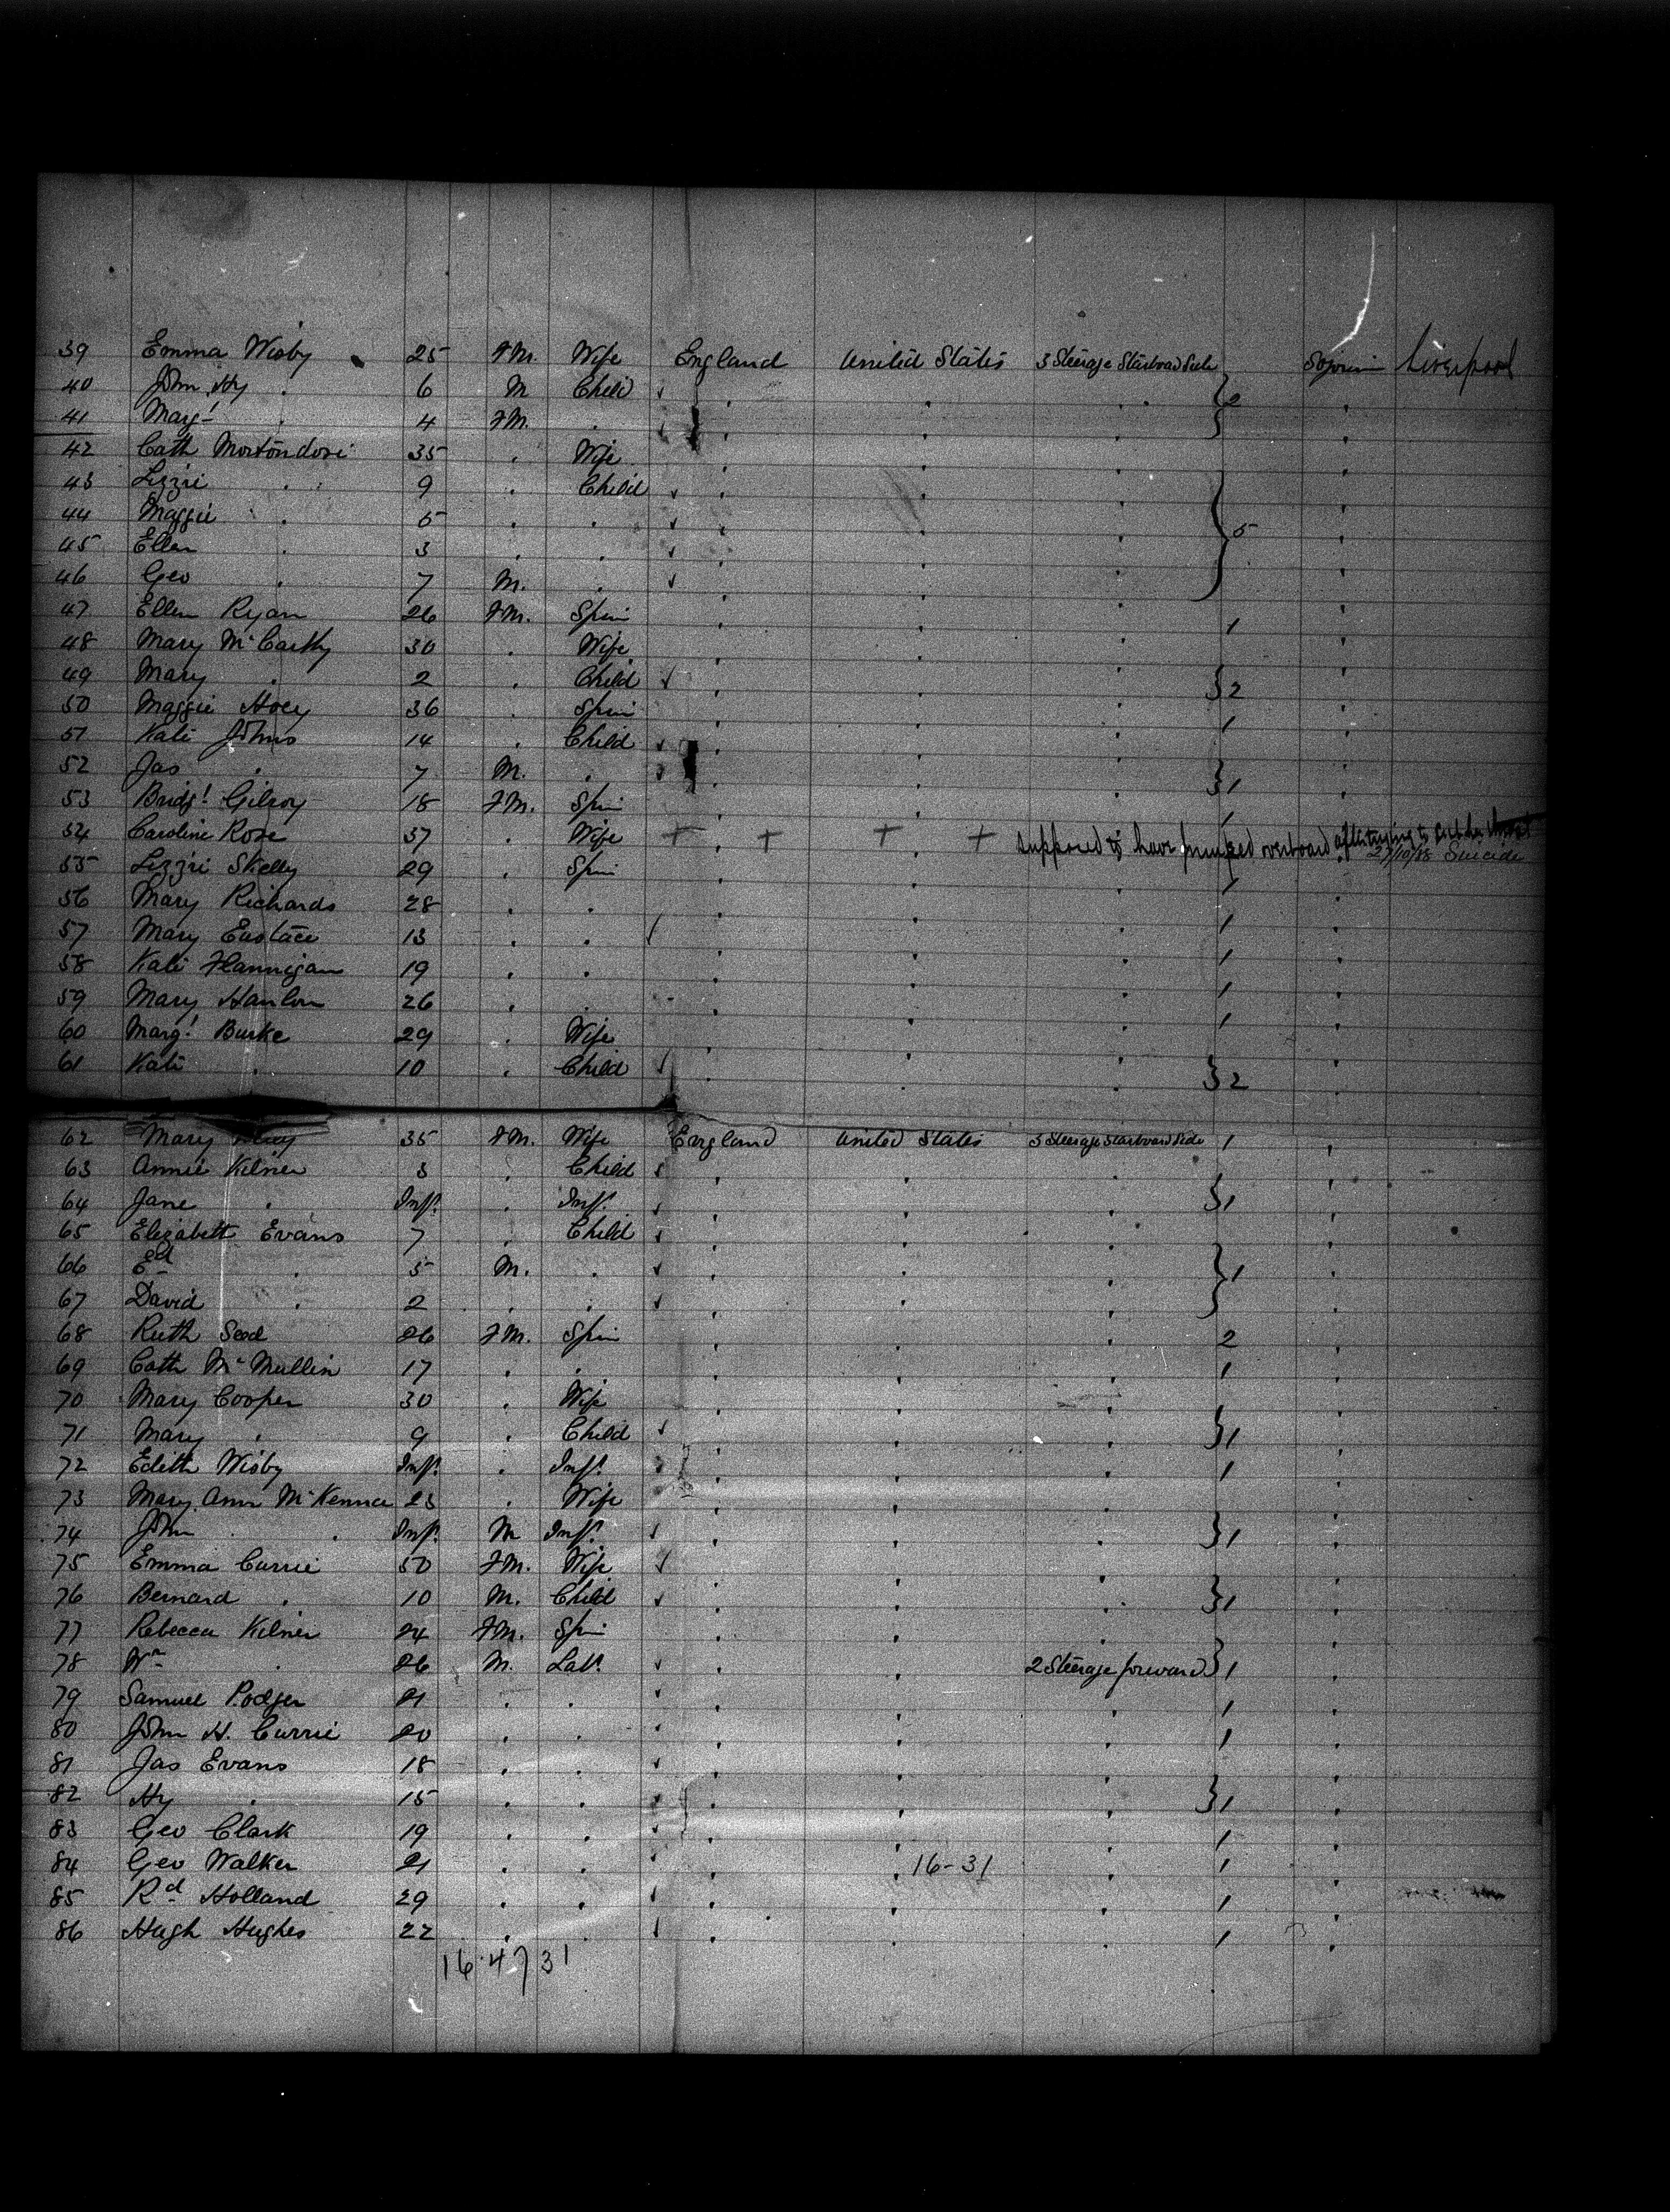 39 Emma Wisby 25 FM. Wife England United States 3 Steerage Starboard Side Sojourn Liverpool
40 John Hy " 6 M Child " " " } 2 "
41 Marg.t " 4 FM. " " " " "
42 Cath 35 " Wife " " " "
43 Lizzie " 9 " Child " " " "
44 Maggie " 5 " " " " " } 5 "
45 Ellen " 3 " " " " " "
46 Geo " 7 M. " " " " "
47 Ellen Ryan 26 FM. Spin " " " 1 "
48 Mary McCarthy 30 " Wife " " " "
49 Mary " 2 " Child " " " } 2 "
50 Maggie Hoey 36 " Spin " " " 1 "
51 Kate Johns 14 " Child " " " "
52 Jas " 7 M. " " " " } 1 "
53 Bridg.t Gilroy 18 FM. Spin " " " 1 "
54 Caroline Rose 37 " Wife + + + + supposed to have jumped overboard after trying to cut her throat
27/10/88 Suicide
55 Lizzie Skelly 29 " Spin " " " 1 "
56 Mary Richards 28 " " " " " 1 "
57 Mary Eustace 13 " " " " " 1 "
58 Kate Flannigan 19 " " " " " 1 "
59 Mary Hanlon 26 " " " " " 1 "
60 Marg.t Burke 29 " Wife " " " "
61 Kate " 10 " Child " " " } 2 "
62 Mary 35 FM. Wife England United States 3 Steerage Starboard Side 1 "
63 Annie Kilner 3 " Child " " " "
64 Jane " Inft. " Inft. " " " } 1 "
65 Elizabeth Evans 7 " Child " " " "
66 Ed " 5 M. " " " " } 1 "
67 David " 2 " " " " " "
68 Ruth Seed 26 FM. Spin " " " 2 "
69 Cath McMullin 17 " " " " " 1 "
70 Mary Cooper 30 " Wife " " " "
71 Mary " 9 " Child " " " } 1 "
72 Edith Wisby Inft. " Inft. " " " 1 "
73 Mary Ann McKenna 23 " Wife " " " "
74 John " Inft. M Inft. " " " } 1 "
75 Emma Currie 50 FM. Wife " " " "
76 Bernard " 10 M. Child " " " } 1 "
77 Rebecca Kilner 24 FM. Spin " " " "
78 Wm " 26 M. Labr. " " 2 Steerage forward } 1 "
79 Samuel Podger 21 " " " " " 1 "
80 John H. Currie 20 " " " " " 1 "
81 Jas Evans 18 " " " " " "
82 Hy " 15 " " " " " } 1 "
83 Geo Clark 19 " " " " " 1 "
84 Geo Walker 21 " " " " 16-31 " 1 "
85 Rd Holland 29 " " " " " 1 "
86 Hugh Hughes 22 " " " " " 1 "
16 4 7 31